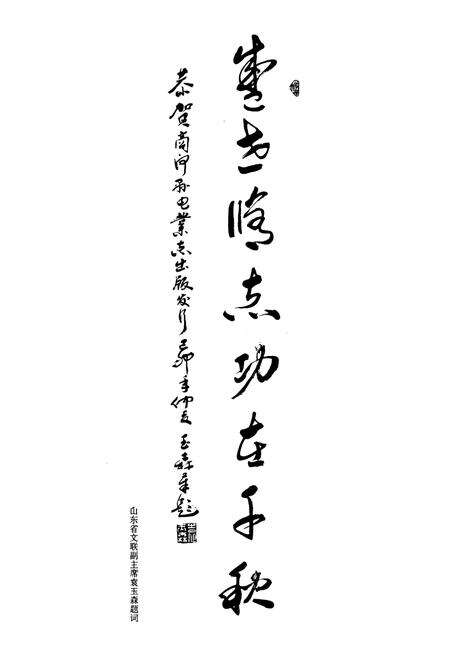 盛世修志功在千秋
恭贺商河县电业志出版发行己卯年仲夏玉森率题
山东省文联副主席袁玉森题词